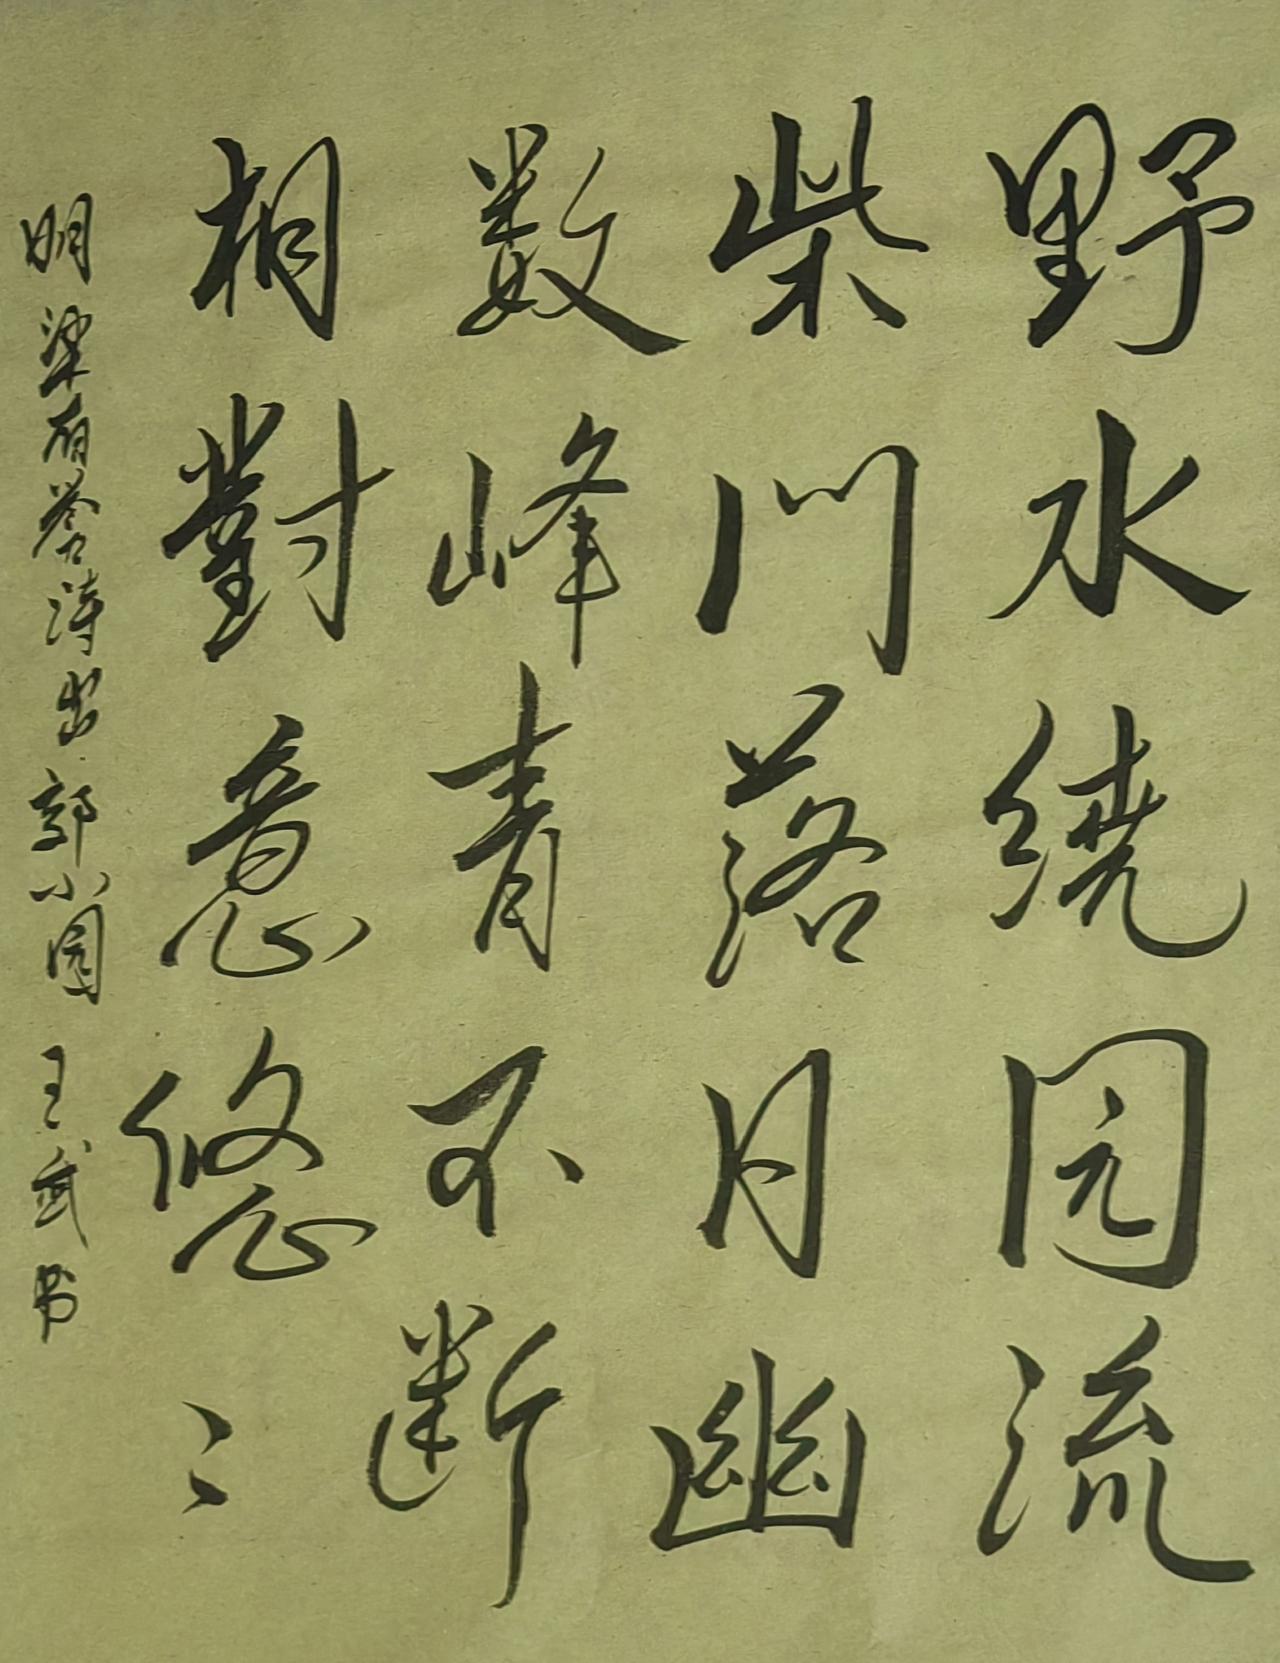 野水绕园流
柴门落月幽
数峰青不断
相對意悠〻
明梁有誉诗出郭小园 王武书